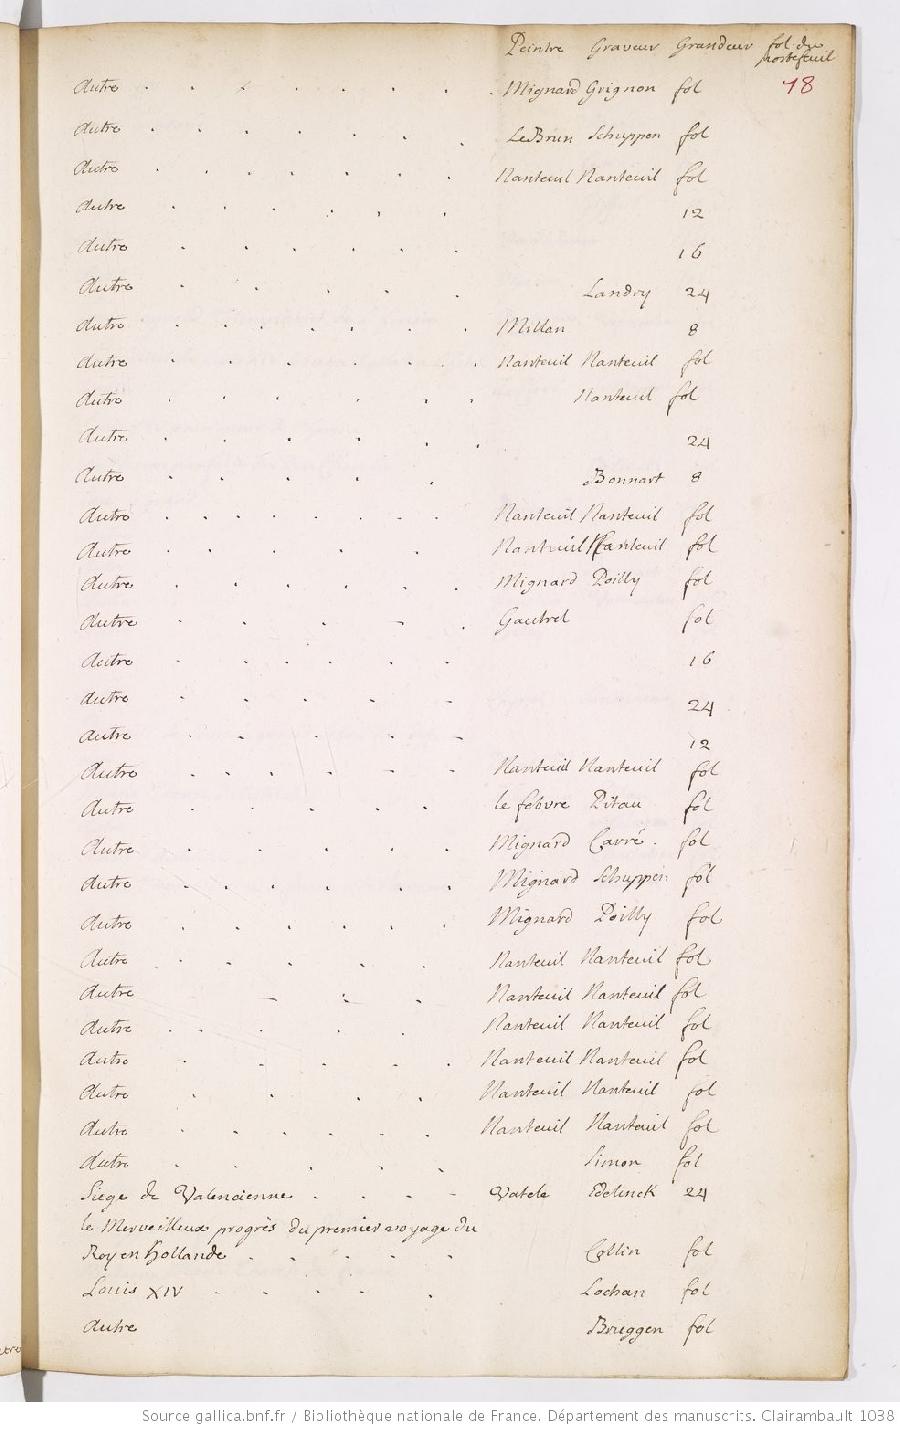 Peintre Graveur Grandeur fol. du
portefeuil
Autre . . . . . . . Mignard Grignon fol 18
Autre . . . . . . . LeBrun Schuppen fol
Autre . . . . . . . Nanteuil Nanteuil fol
Autre . . . . . . 12
Autre . . . . . . 16
Autre . . . . . Landry 24
Autre . . . . . . Millan 8
Autre . . . . . . Nanteuil Nanteuil fol
Autre . . . . . Nanteuil fol
Autre . . . . . . 24
Autre . . . . . Bonnart 8
Autre . . . . . . . Nanteuil Nanteuil fol
Autre . . . . . Nanteuil Nanteuil fol
Autre . . . . . . Mignard Poilly fol
Autre . . . . . Gautrel fol
Autre . . . . . . 16
Autre . . . . . 24
Autre . . . . . 12
Autre . . . . . . Nanteuil Nanteuil fol
Autre . . . . . le febvre Pitau fol
Autre . . . . . Mignard Carré . fol
Autre . . . . . . Mignard Schuppen fol
Autre . . . . . . Mignard Poilly fol
Autre . . . . . Nanteuil Nanteuil fol
Autre . . . Nanteuil Nanteuil fol
Autre . . . . . Nanteuil Nanteuil fol
Autre . . . . . Nanteuil Nanteuil fol
Autre . . . . . Nanteuil Nanteuil fol
Autre . . . . . . Nanteuil Nanteuil fol
Autre . . . . . Simon fol
Siege de Valencienne . . . . Vatele Edelinck 24
le Merveilleux progrès du premier voyage du
Roy en Hollande . . . . . Collin fol
Louis XIV . . . . . Lochan fol
Autre Bruggen fol
Source gallica.bnf.fr / Bibliothèque nationale de France. Département des manuscrits. Clairambault 1038